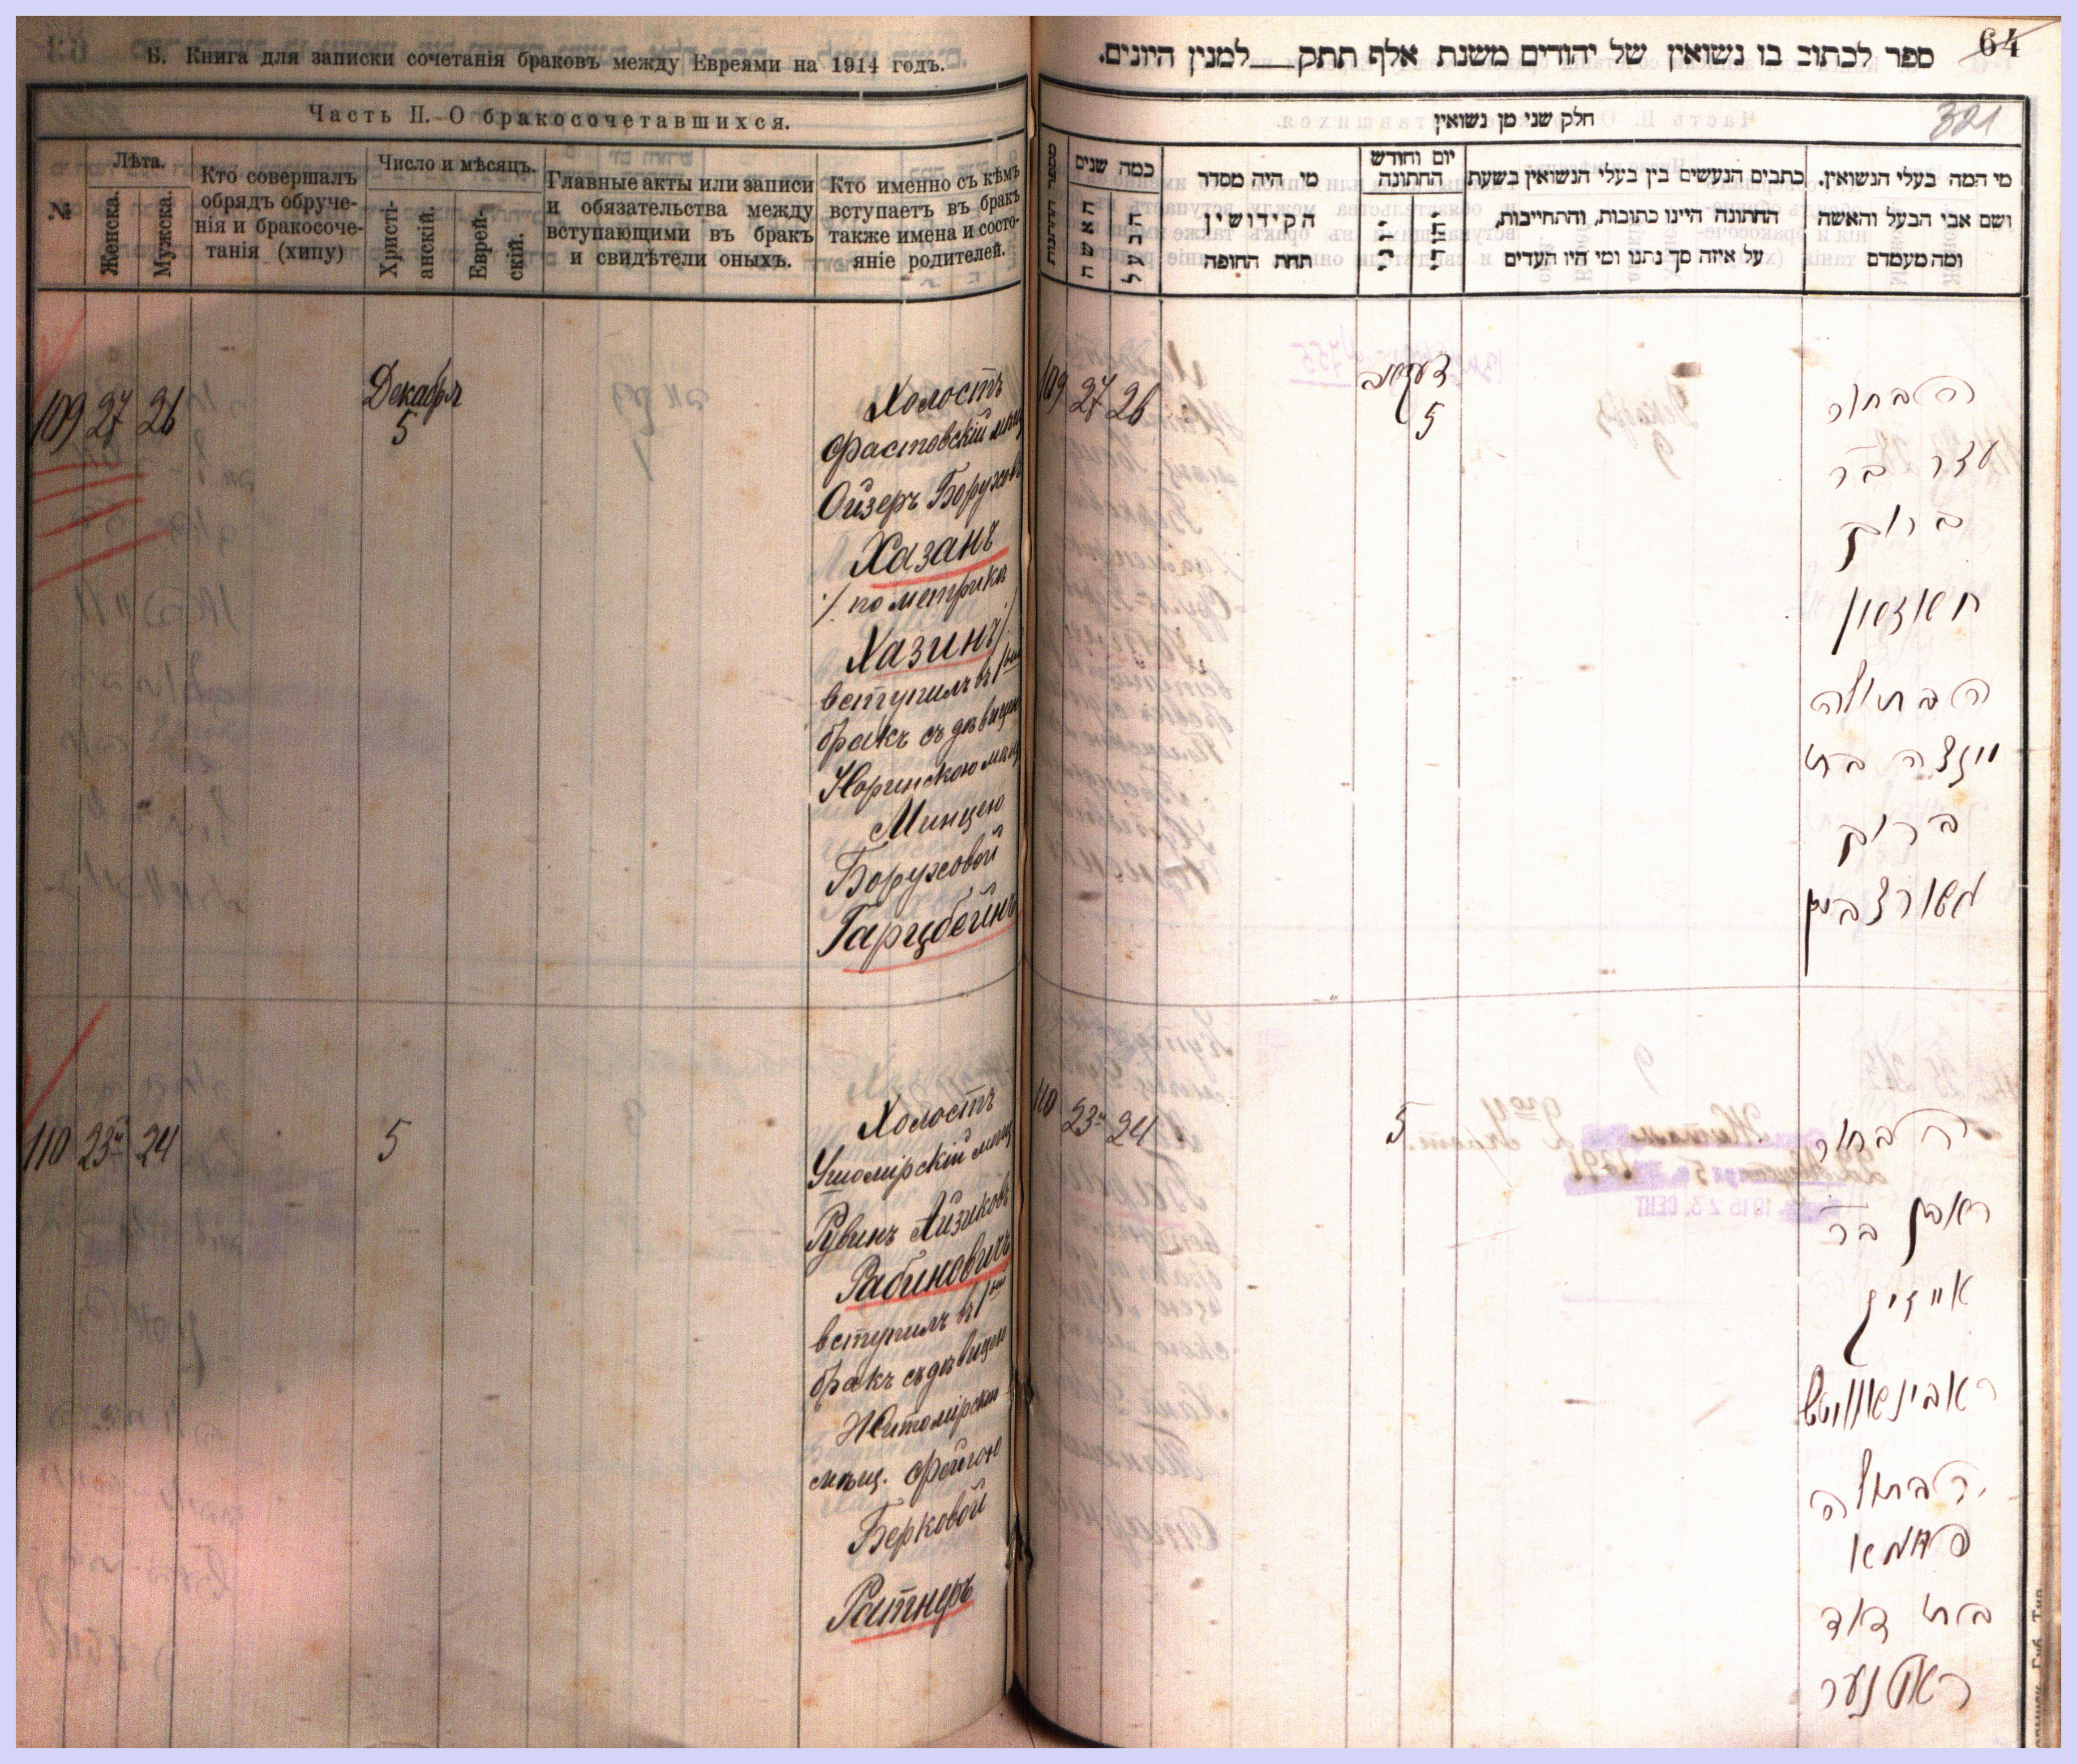 Б. Книга для записки сочетанія браковъ между Евреями на 1914 годъ.
Часть II. О бракосочетавшихся.
№
Лѣта.
Женска.
Мужска.
Кто совершалъ
обрядъ обруче-
нія и бракосоче-
танія (хипу)
Число и мѣсяцъ.
Христі-
анскій.
Еврей-
скій.
Главные акты или записи
и обязательства между
вступающими въ бракъ
и свидѣтели оныхъ.
Кто именно съ кѣмъ
вступаетъ въ бракъ
также имена и состо-
яніе родителей.
109 27 26
Декабря
5
Холостъ
Фастовскій мѣщ
Ойзеръ Боруховъ
Хазанъ
/. по метрикѣ
Хазинъ ./
вступилъ въ 1ый
бракъ съ дѣвицею
Норинскою мѣщ
Минцею
Боруховой
Гарцбейнъ
110 23 24
5
Холостъ
Ушомірскій мѣщ
Рувинъ Айзиковъ
Рабиновичъ
вступилъ въ 1ый
бракъ съ дѣвицею
Житомірскою
мѣщ. Фейгою
Берковой
Ратнеръ
64
ספר לכתוב בו נשואין של יהודים משנת אלף תתק למנין היונים.
321
חלק שני מן נשואין
כמה שנים
האשה
הבעל
מי היה מסדר
הקידושין
תחת החופה
יום וחודש
החתונה
כתבים הנעשים בין בעלי הנשואין בשעת
החתונה היינו כתובות, והתחייבות,
על איזה סך נתנו ומי היו העדים
מי המה בעלי הנשואין.
ושם אבי הבעל והאשה
ומה מעמדם
109 27 26
5
הבחור
עזר בר
ברוך
חאזאן
הבתולה
מינצה בת
ברוך
גארצביין
110 23 24
5
הבחור
ראבן בר
אייזיק
ראבינאוויטש
הבתולה
בת
ראטנער